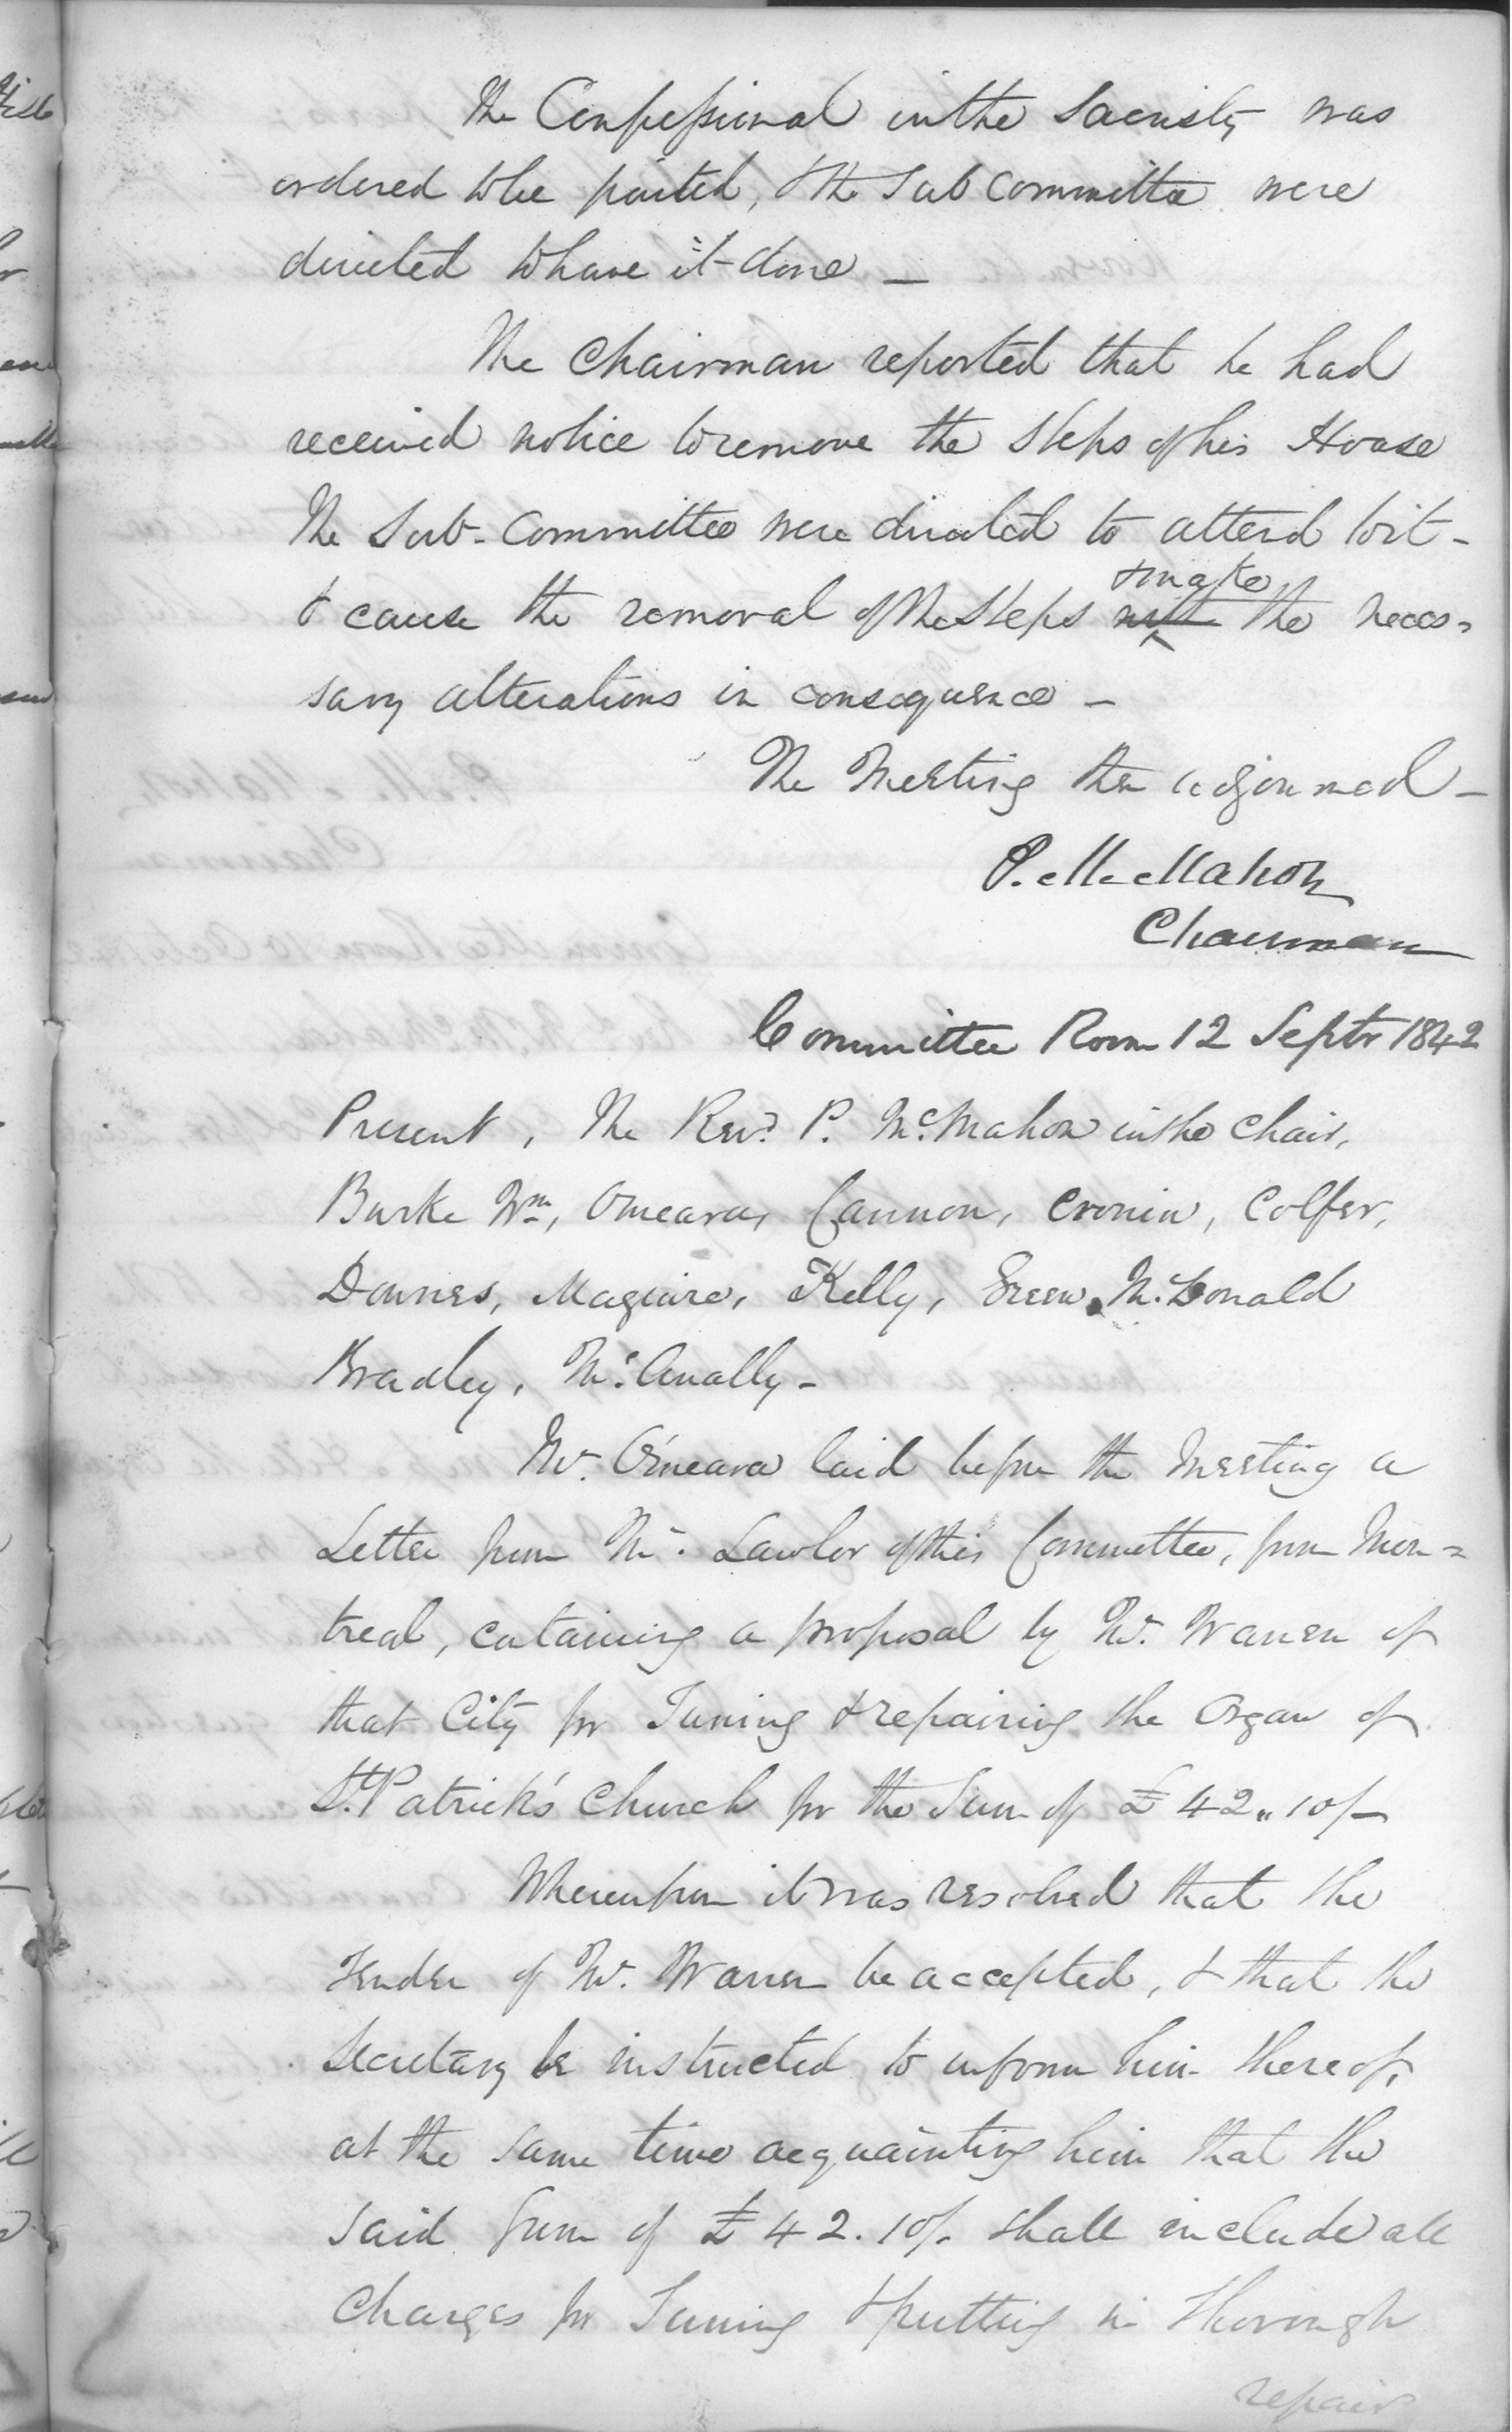 The Confessional in the Sacristy was
ordered to be painted, & the Sub Committee were
directed to have it done —
The Chairman reported that he had
received notice to remove the Steps of his House
The Sub-Committee were directed to attend to it -
& cause the removal of the Steps with the neces=
& make
sary alterations in consequence —
The Meeting then adjourned —
P. McMahon
Chairman
Committee Room 12 Septr 1842
Present, The Revd P. McMahon in the Chair,
Burke Wm, Omeara, Cannon, Cronin, Colfer,
Downes, Maguire, Kelly, Green, McDonald
Bradley, McAnally -
Mr. O'meara laid before the Meeting a
Letter from Mr. Lawlor of this Committee, from Mon=
treal, containing a proposal by Mr. Warren of
that City for Tuning & repairing the Organ of
St. Patrick's Church for the Sum of £ 42 " 10/-
Whereupon it was resolved that the
Tender of Mr. Warren be accepted, & that the
Secretary be instructed to inform him thereof,
at the same time acquainting him that the
said Sum of £ 42.10/. shall include all
Charges for Tuning & putting in thorough
repair